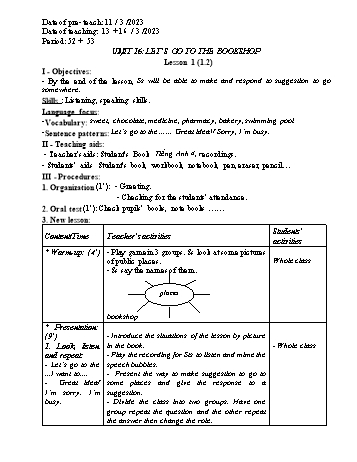 Date of pre- teach: 11 / 3 /2023
Date of teaching: 13 +16 / 3 /2023
Period: 52 + 53
UNIT 16: LET'S GO TO THE BOOKSHOP
Lesson 1 (1.2)
I - Objectives:
- By the end of the lesson, Ss will be able to make and respond to suggestion to go
somewhere.
Skills: Listening, speaking skills.
Language focus:
-Vocabulary: sweet, chocolate, medicine, pharmacy, bakery, swimming pool
-Sentence patterns: Let's go to the...... Great idea!/ Sorry, I'm busy.
II - Teaching aids:
- Teacher's aids: Student's Book Tiếng Anh 4, recordings.
- Students' aids: Student's book, workbook, notebook, pen, eraser, pencil...
III - Procedures:
1. Organization (1'): - Greeting.
- Checking for the students' attendance.
2. Oral test (1'): Check pupils' books, note books .......
3. New lesson:
Content/Time
Teacher's activities
Students' activities
* Warm-up: (4')
- Play game in 3 groups. Ss look at some pictures
of public places.
- Ss say the names of them.
places
bookshop
Whole class
* Presentation:
(9')
1. Look, listen
and repeat:
- Let's go to the
...I want to....
- Great idea/
I'm sorry. I'm
busy.
- Introduce the situations of the lesson by picture
in the book.
- Play the recording for Sts to listen and mime the
speech bubbles.
- Present the way to make suggestion to go to
some places and give the response to a
suggestion.
- Divide the class into two groups. Have one
group repeat the question and the other repeat
the answer then change the role.
- Whole class